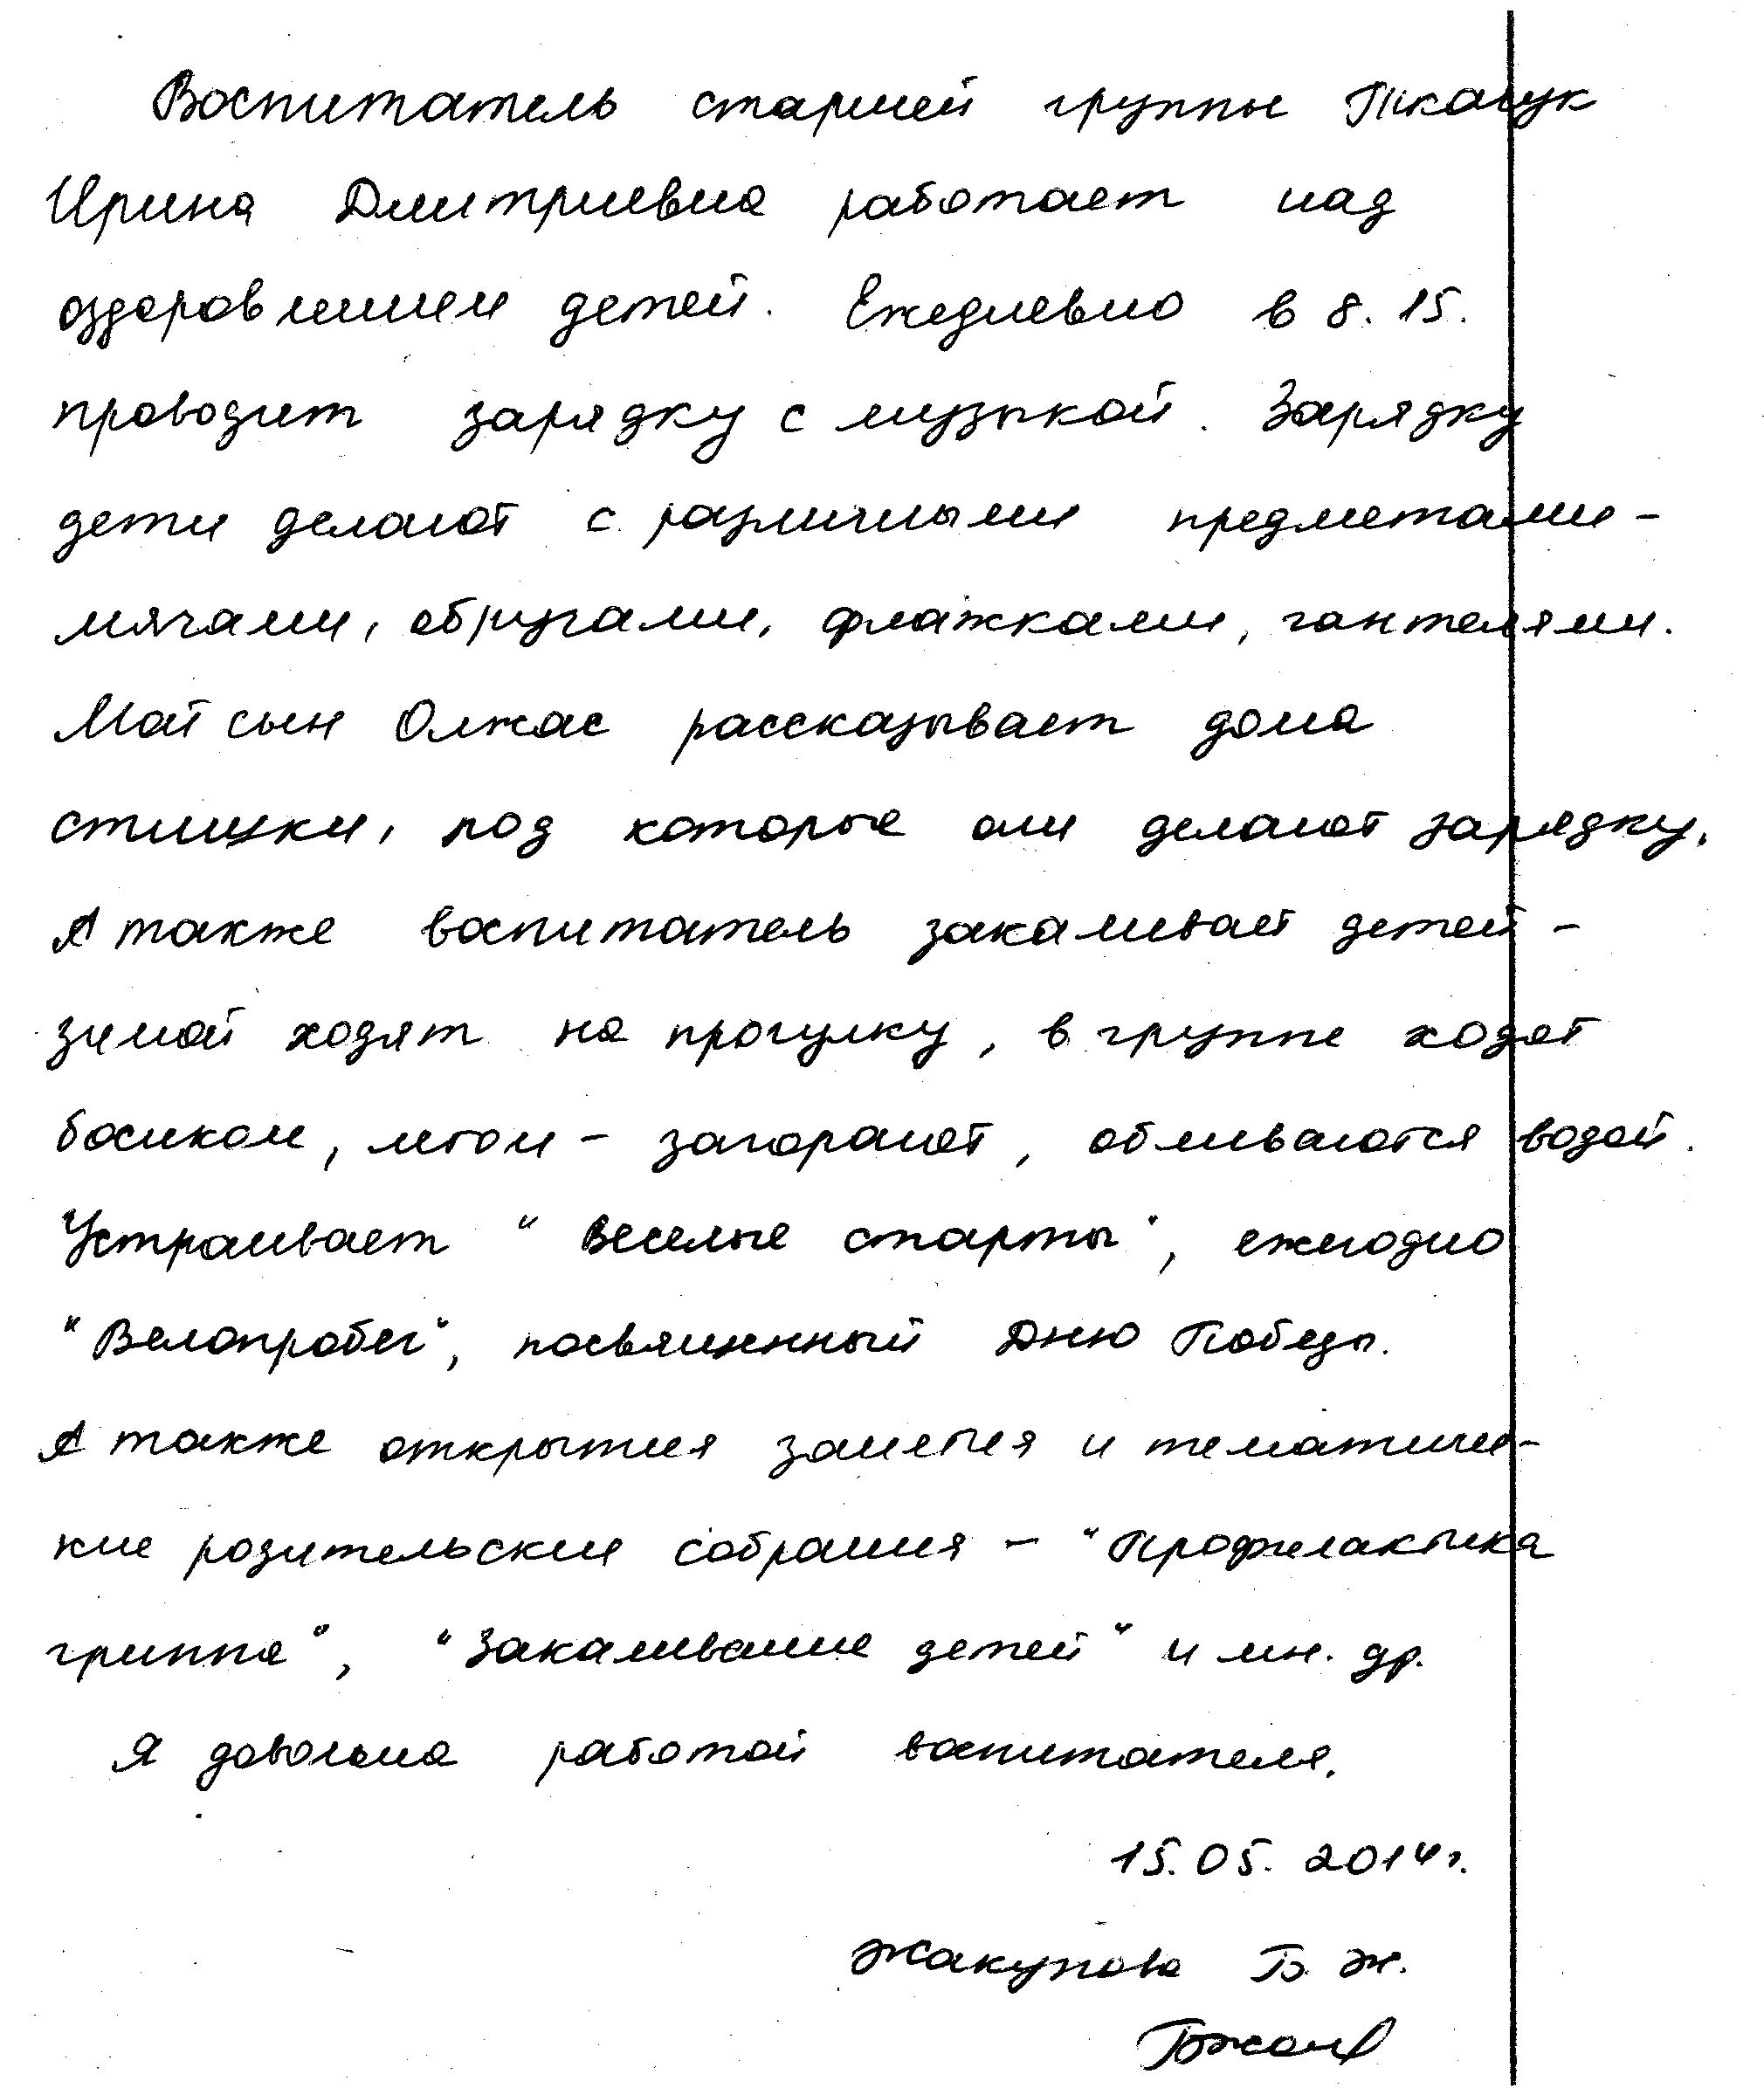 Воспитатель старшей группы Ткачук
Ирина Дмитриевна работает над
оздоровлением детей. Ежедневно в 8.15.
проводит зарядку с музыкой. Зарядку
дети делают с различными предметами -
мячами, обручами, флажками, гантелями.
Мой сын Олжас рассказывает дома
стишки, под которые они делают зарядку.
А также воспитатель закаливает детей -
зимой ходят на прогулку, в группе ходят
босиком, летом - загорают, обливаются водой.
Устраивает "Веселые старты", ежегодно
"Велопробег", посвященный Дню Победы.
А также открытия занятия и тематичес-
кие родительские собрания - "Профилактика
гриппа", "Закаливание детей" и мн. др.
Я довольна работой воспитателя.
15.05.2014г.
Жакупова Б. Ж.